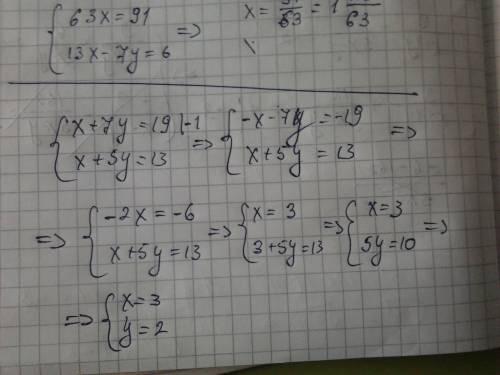 { 63x = 91
13x - 7y = 6 =>
x = 91/63 = 1 /63
{ x + 7y = 19 |-1
x + 5y = 13 => { -x - 7y = -19
x + 5y = 13 =>
=> { -2x = -6
x + 5y = 13 => { x = 3
3 + 5y = 13 => { x = 3
5y = 10 =>
=> { x = 3
y = 2